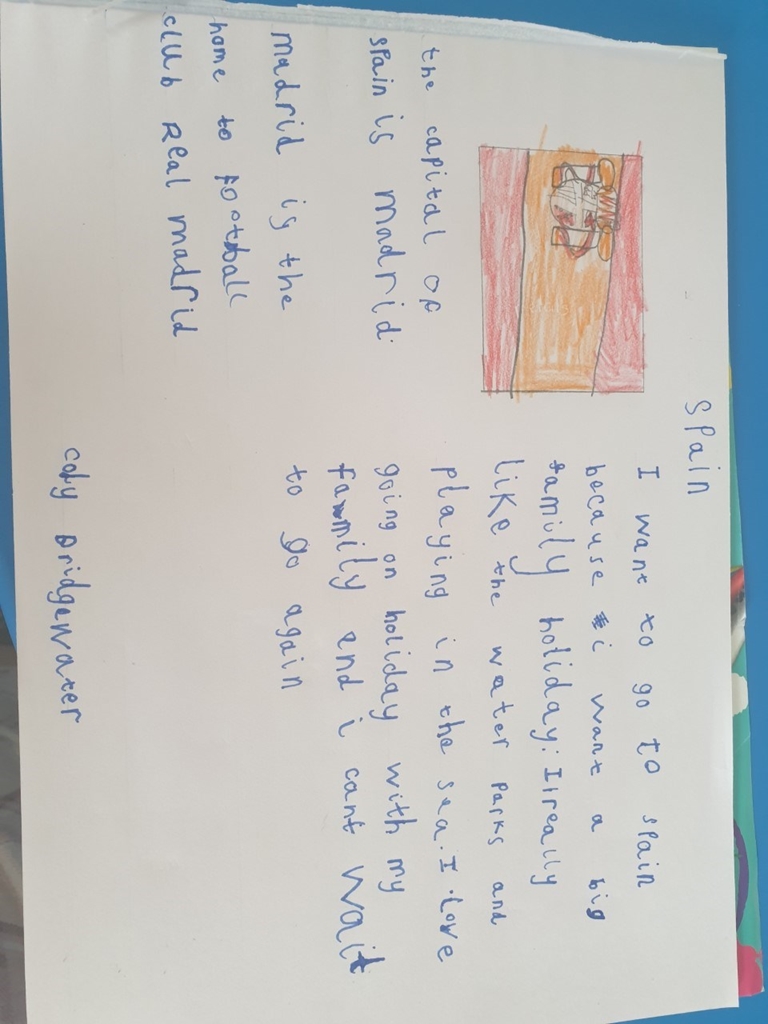 Spain
I want to go to spain
because i want a big
family holiday. I really
like the water parks and
playing in the sea. I love
going on holiday with my
fammily and i cant wait
to go again
the capital of
spain is madrid.
madrid is the
home to football
club Real madrid
coby Bridgewater